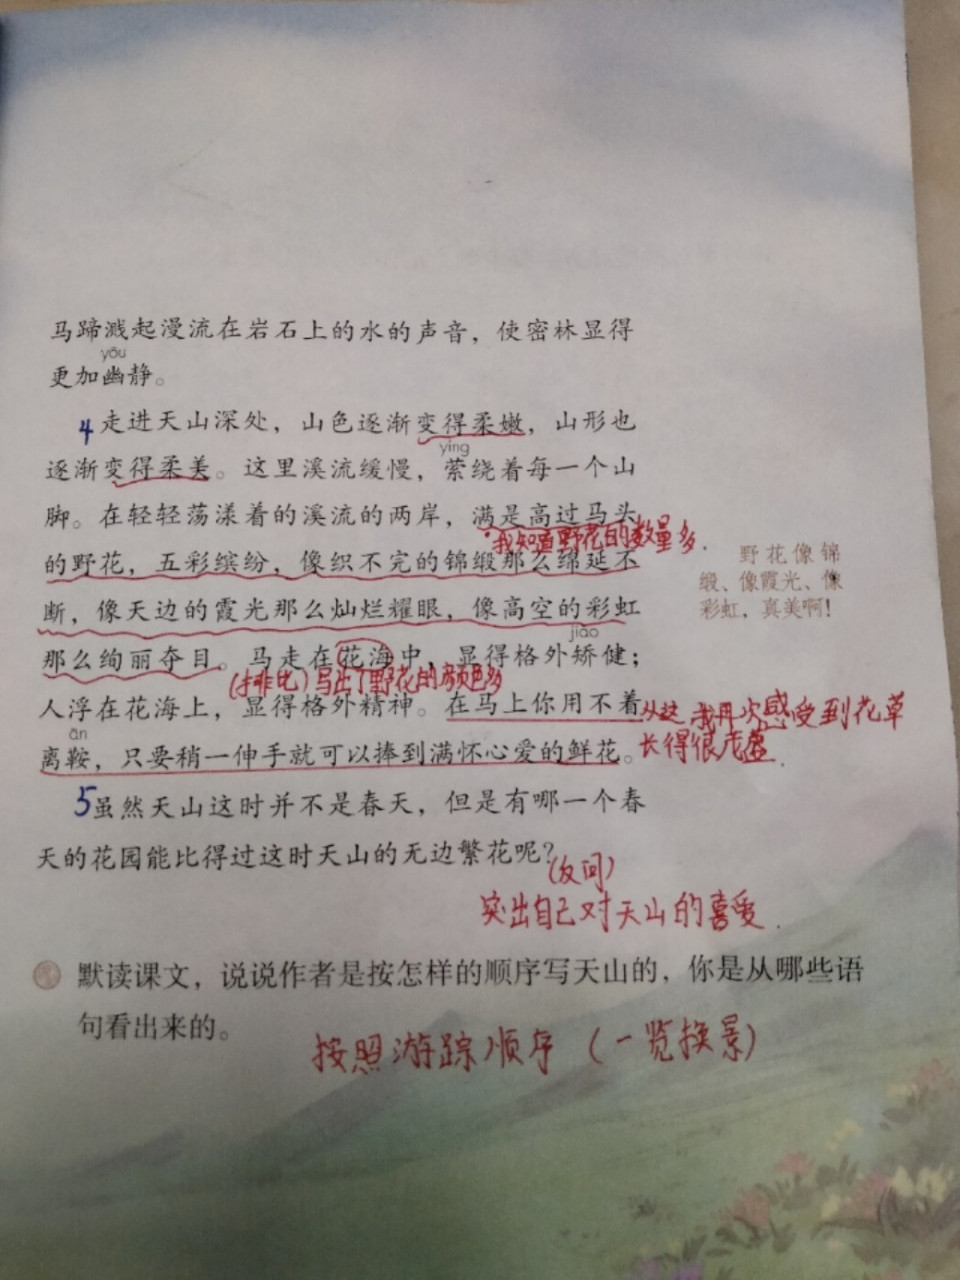 马蹄溅起漫流在岩石上的水的声音，使密林显得
yōu
更加幽静。
4 走进天山深处，山色逐渐变得柔嫩，山形也
yíng
逐渐变得柔美。这里溪流缓慢，萦绕着每一个山
脚。在轻轻荡漾着的溪流的两岸，满是高过马头
我知道野花的数量多.
的野花，五彩缤纷，像织不完的锦缎那么绵延不
野花像锦
缎、像霞光、像
彩虹，真美啊！
断，像天边的霞光那么灿烂耀眼，像高空的彩虹
jiǎo
那么绚丽夺目。马走在花海中，显得格外矫健；
(排比) 写出了野花的颜色多
人浮在花海上，显得格外精神。在马上你用不着
从这 我再次感受到花草
ān
离鞍，只要稍一伸手就可以捧到满怀心爱的鲜花。
长得很茂盛.
5 虽然天山这时并不是春天，但是有哪一个春
天的花园能比得过这时天山的无边繁花呢？
(反问)
突出自己对天山的喜爱.
默读课文，说说作者是按怎样的顺序写天山的，你是从哪些语
句看出来的。
按照游踪顺序 (一览换景)